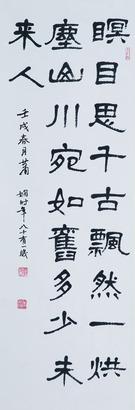 瞑目思千古飄然一烘
塵山川宛如舊多少未
來人
壬戌春月蕭
嫻時年八十有一歲